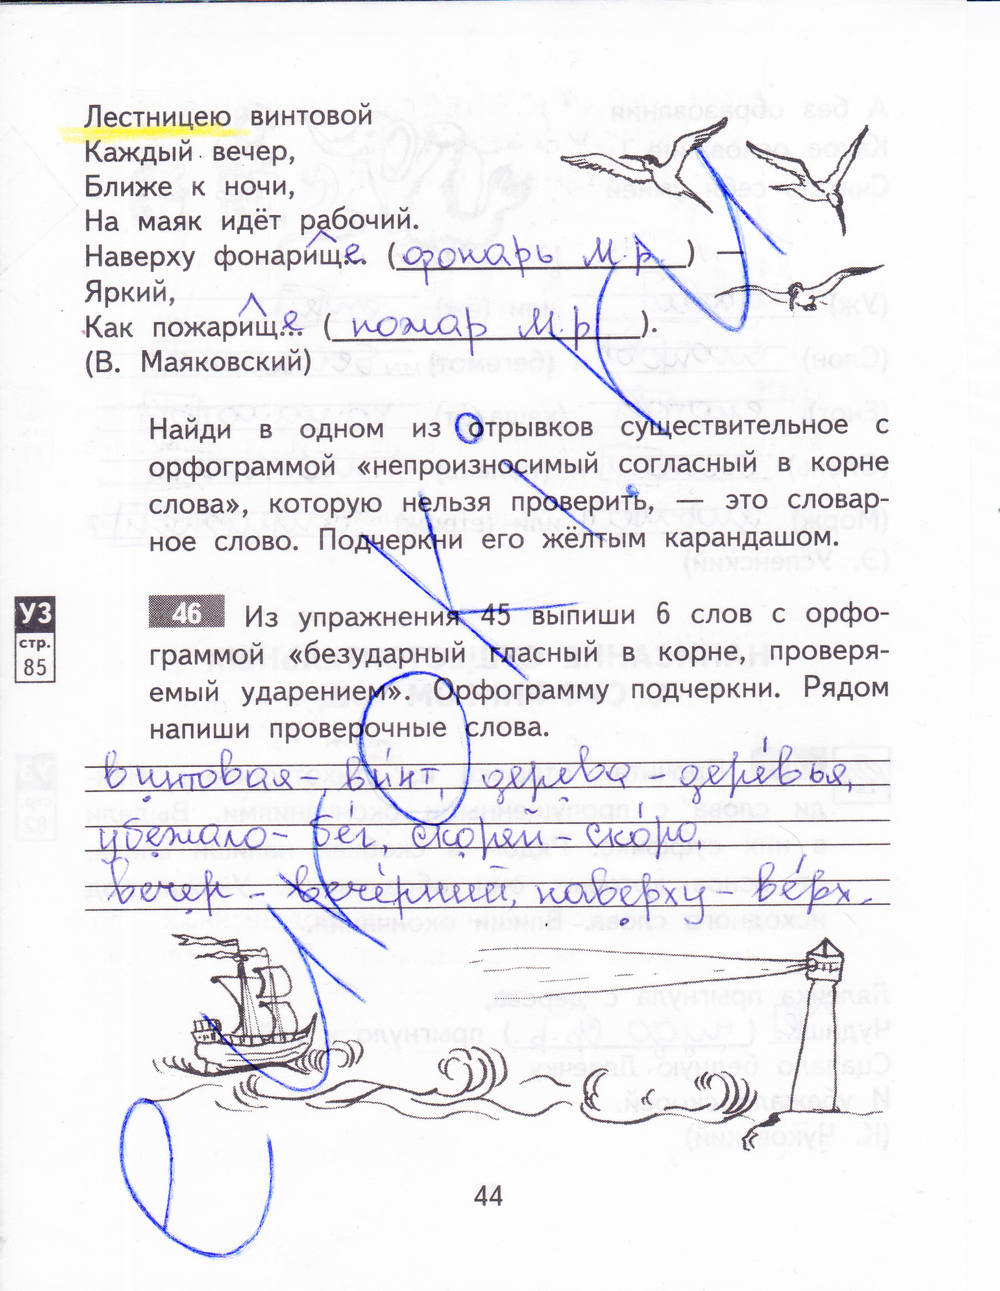 Лестницею винтовой
Каждый вечер,
Ближе к ночи,
На маяк идёт рабочий.
Наверху фонарище (фонарь м.р.) —
Яркий,
Как пожарище (пожар м.р.).
(В. Маяковский)
Найди в одном из отрывков существительное с
орфограммой «непроизносимый согласный в корне
слова», которую нельзя проверить, — это словар-
ное слово. Подчеркни его жёлтым карандашом.
УЗ
стр.
85
46 Из упражнения 45 выпиши 6 слов с орфо-
граммой «безударный гласный в корне, проверя-
емый ударением». Орфограмму подчеркни. Рядом
напиши проверочные слова.
винтовая - винт, дерева - деревья,
убежало - бег, скорей - скоро,
вечер - вечерний, наверху - верх.
44